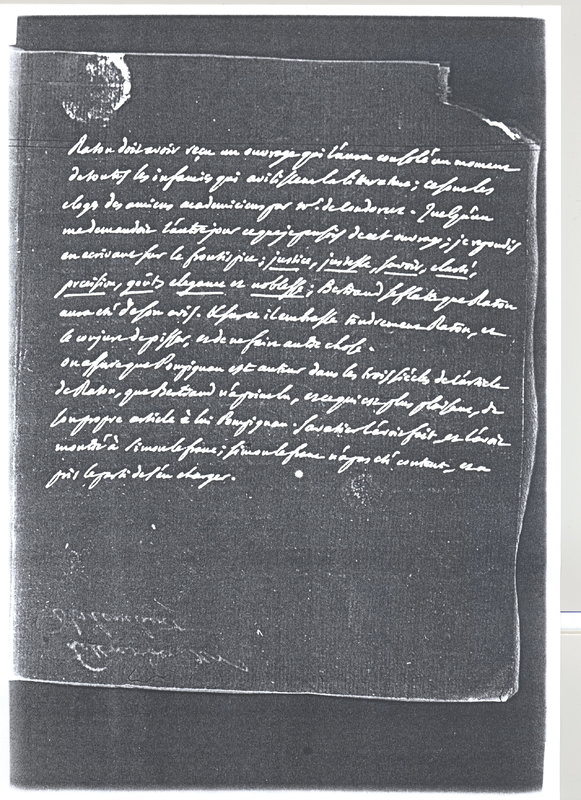 Raton doit avoir reçu un ouvrage qui l'aura consolé un moment
de toutes les infamies qui avilissent la litterature; ce sont les
eloges des anciens academiciens par mr. de Condorcet. Quelqu'un
me demandoit l'autre jour ce que je pensois de cet ouvrage; je repondis
en ecrivant sur le frontispice; justice, justesse, savoir, clarté,
precision, goût, elegance et noblesse; Bertrand se flatte que Raton
aura eté de son avis. Il embrasse tendrement Raton, et
le conjure de pisser, et de ne faire autre chose.
on assure que Pompignan est auteur dans les trois siecles de l'article
de Raton, que Bertrand n'a point lu, et ce qui est plus plaisant, de
son propre article à lui Pompignan. Savatier l'avoit fait, et l'avoit
montré à Simon le franc; Simon le franc n'a pas eté content, et a
pris le parti de s'en charger.